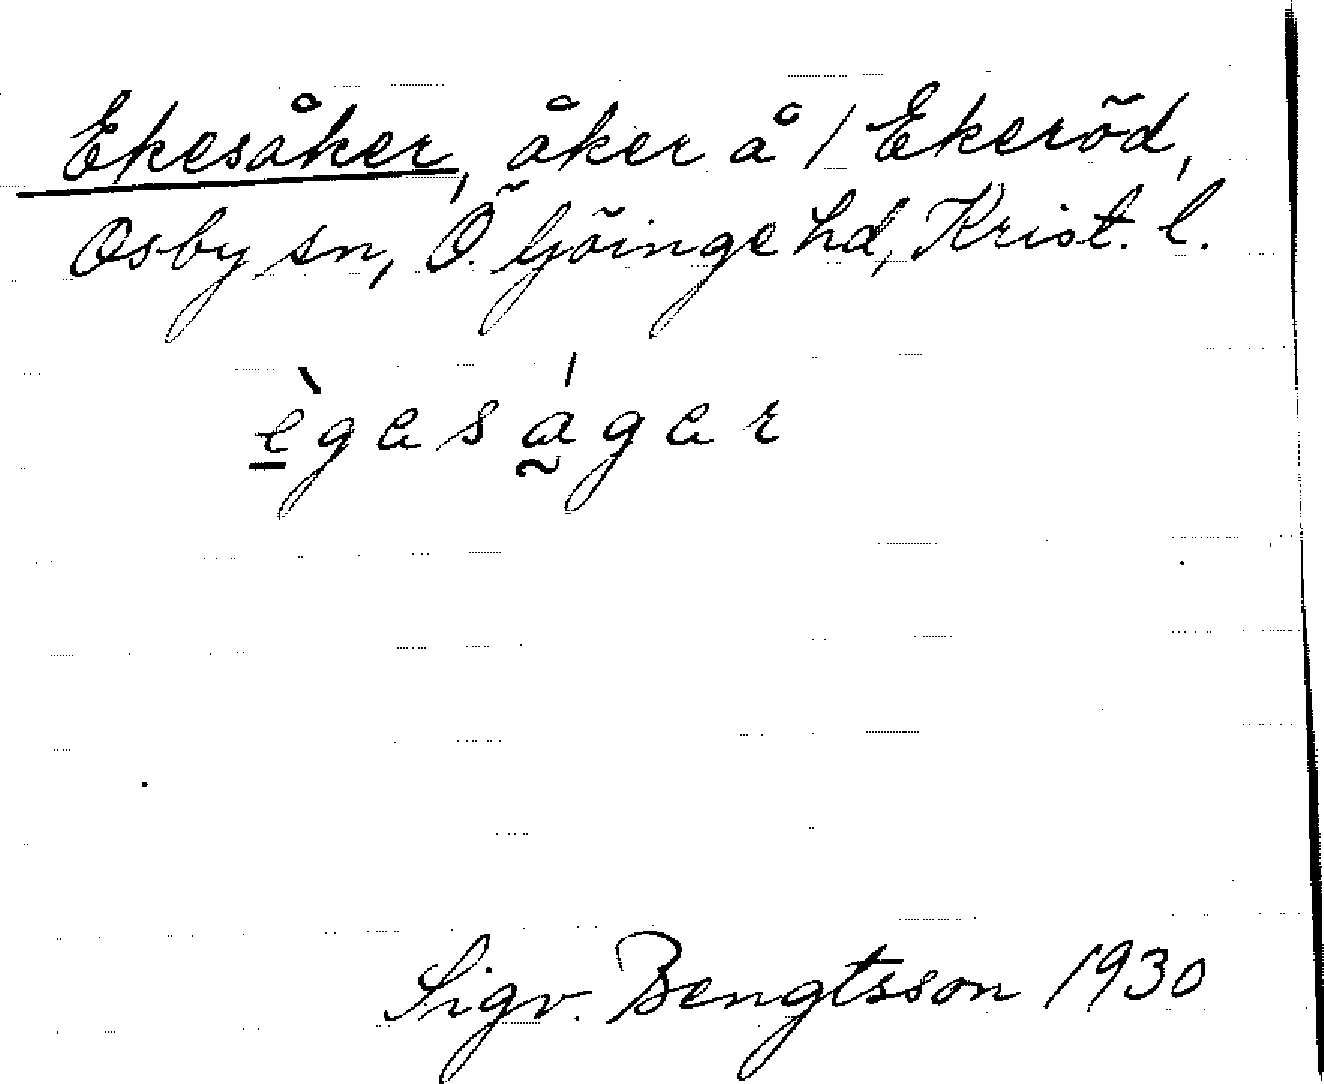 Ekesåker, åker å / Ekeröd,
Osby sn, Ö. Göinge hd, Krist. l.
ègeságer
Sigv. Bengtsson 1930